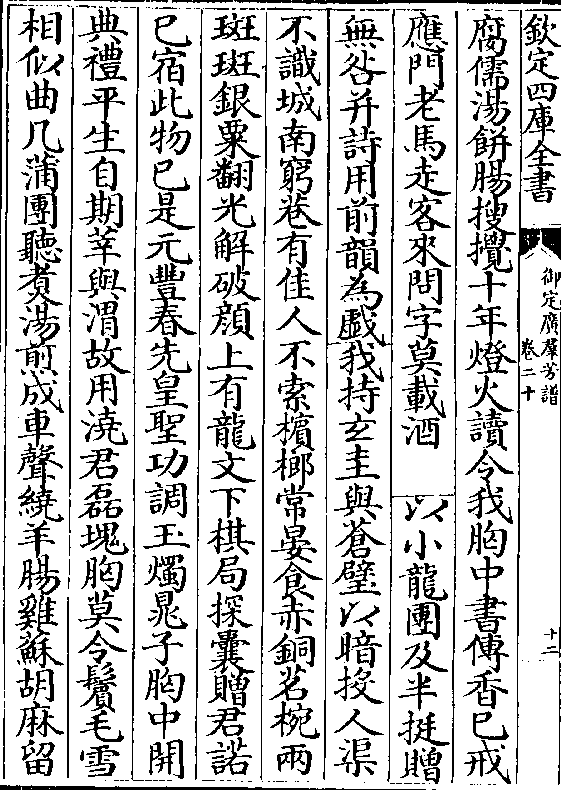 欽定四庫全書
御定廣羣芳譜
卷二十
十二
腐儒湯餅腸搜攪十年燈火讀令我胸中書傳香已戒
應門老馬走客來問字莫載酒 以小龍團及半挺贈
無咎并詩用前韻為戲我持玄圭與蒼璧以暗投人渠
不識城南窮巷有佳人不索檳榔常晏食赤銅茗椀兩
斑斑銀粟翻光解破顏上有龍文下棋局探囊贈君諾
已宿此物已是元豐春先皇聖功調玉燭晁子胸中開
典禮平生自期莘與渭故用澆君磊塊胸莫令鬢毛雪
相似曲几蒲團聽煮湯煎成車聲繞羊腸雞蘇胡麻留